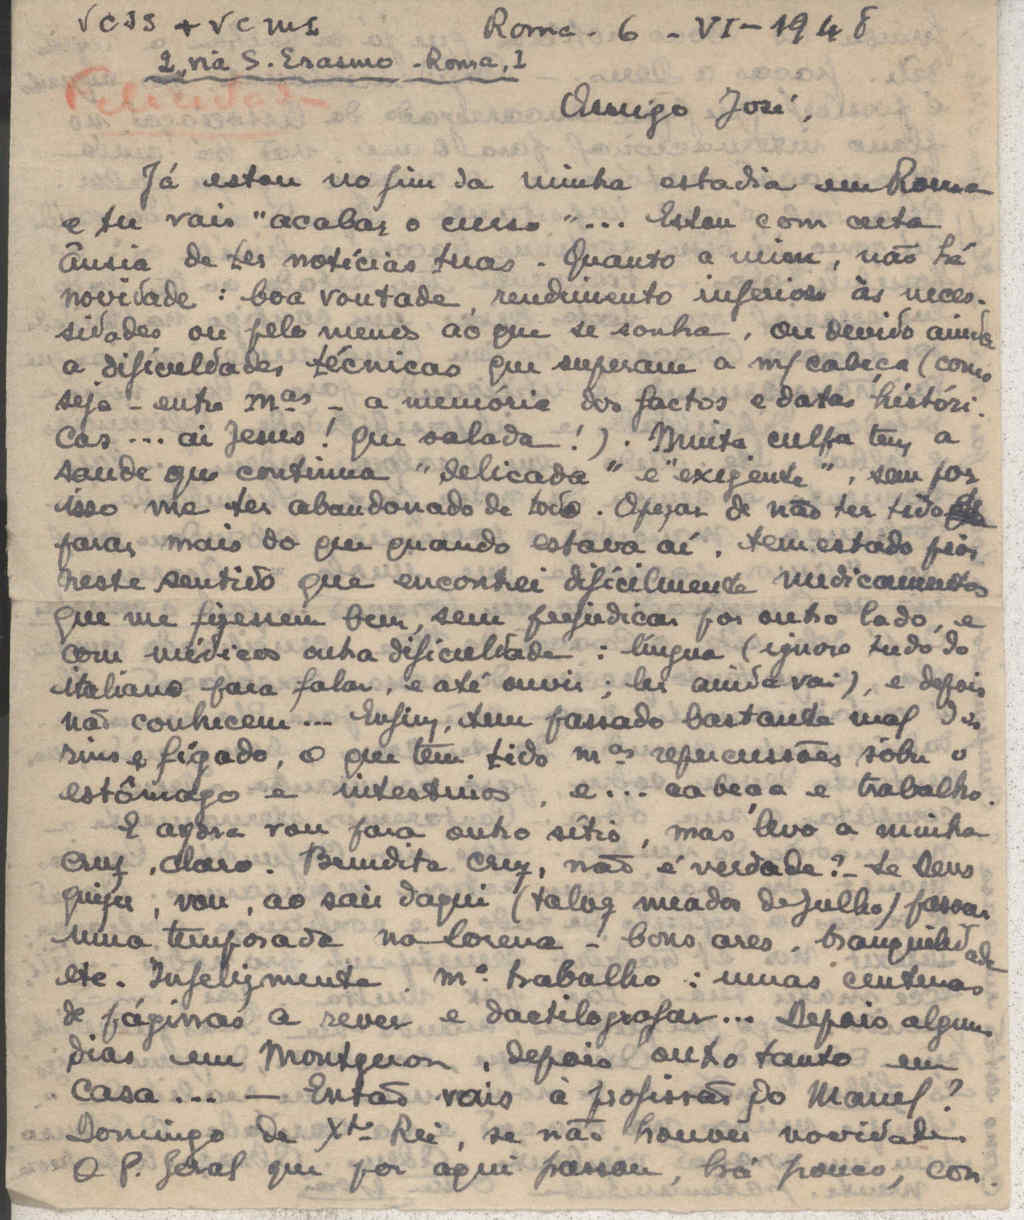 VCJS + VCMI Roma - 6 - VI - 1948
2, via S. Erasmo - Roma, 1
Amigo José,
Já estou no fim da minha estadia em Roma
e tu vais "acabar o curso"... Estou com certa
ânsia de ter notícias tuas. Quanto a mim, não há
novidade: boa vontade, rendimento inferior às neces-
sidades ou pelo menos ao que se sonha, ou devido ainda
a dificuldades técnicas que superam a m/ cabeça (como
seja - entre mas - a memória dos factos e datas históri-
cas... ai Jesus! que salada!). Muita culpa tem a
saude que continua "delicada" e "exigente", sem por
isso me ter abandonado de todo. Apesar de não ter tido
parar mais do que quando estava aí, tem estado pior
neste sentido que encontrei dificilmente medicamentos
que me fizessem bem, sem prejudicar por outro lado, e
com médicos outra dificuldade: língua (ignoro tudo do
italiano para falar, e até ouvir; ler ainda vai), e depois
não conhecem... Enfim, tem passado bastante mal dos
rins e fígado, o que têm tido mas repercussões sôbre o
estômago e intestinos, e... cabeça e trabalho.
E agora vou para outro sítio, mas levo a minha
cruz, claro. Bendita cruz, não é verdade? - Se Deus
quizer, vou, ao sair daqui (talvez meados de Julho) passar
uma temporada na Lorena - bons ares, tranquilidade
etc. Infelizmente mo trabalho: umas centenas
de páginas a rever e dactilografar... Depois alguns
dias em Montgeron, depois outro tanto em
casa... - Então vais à profissão do Manel?
Domingo de Xto Rei, se não houver novidade.
O P. Geral que por aqui passou, há pouco, con-